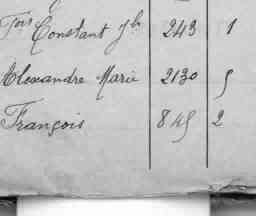 Fois Constant Jh 243 1
Alexandre Marie 2130 5
François 845 2